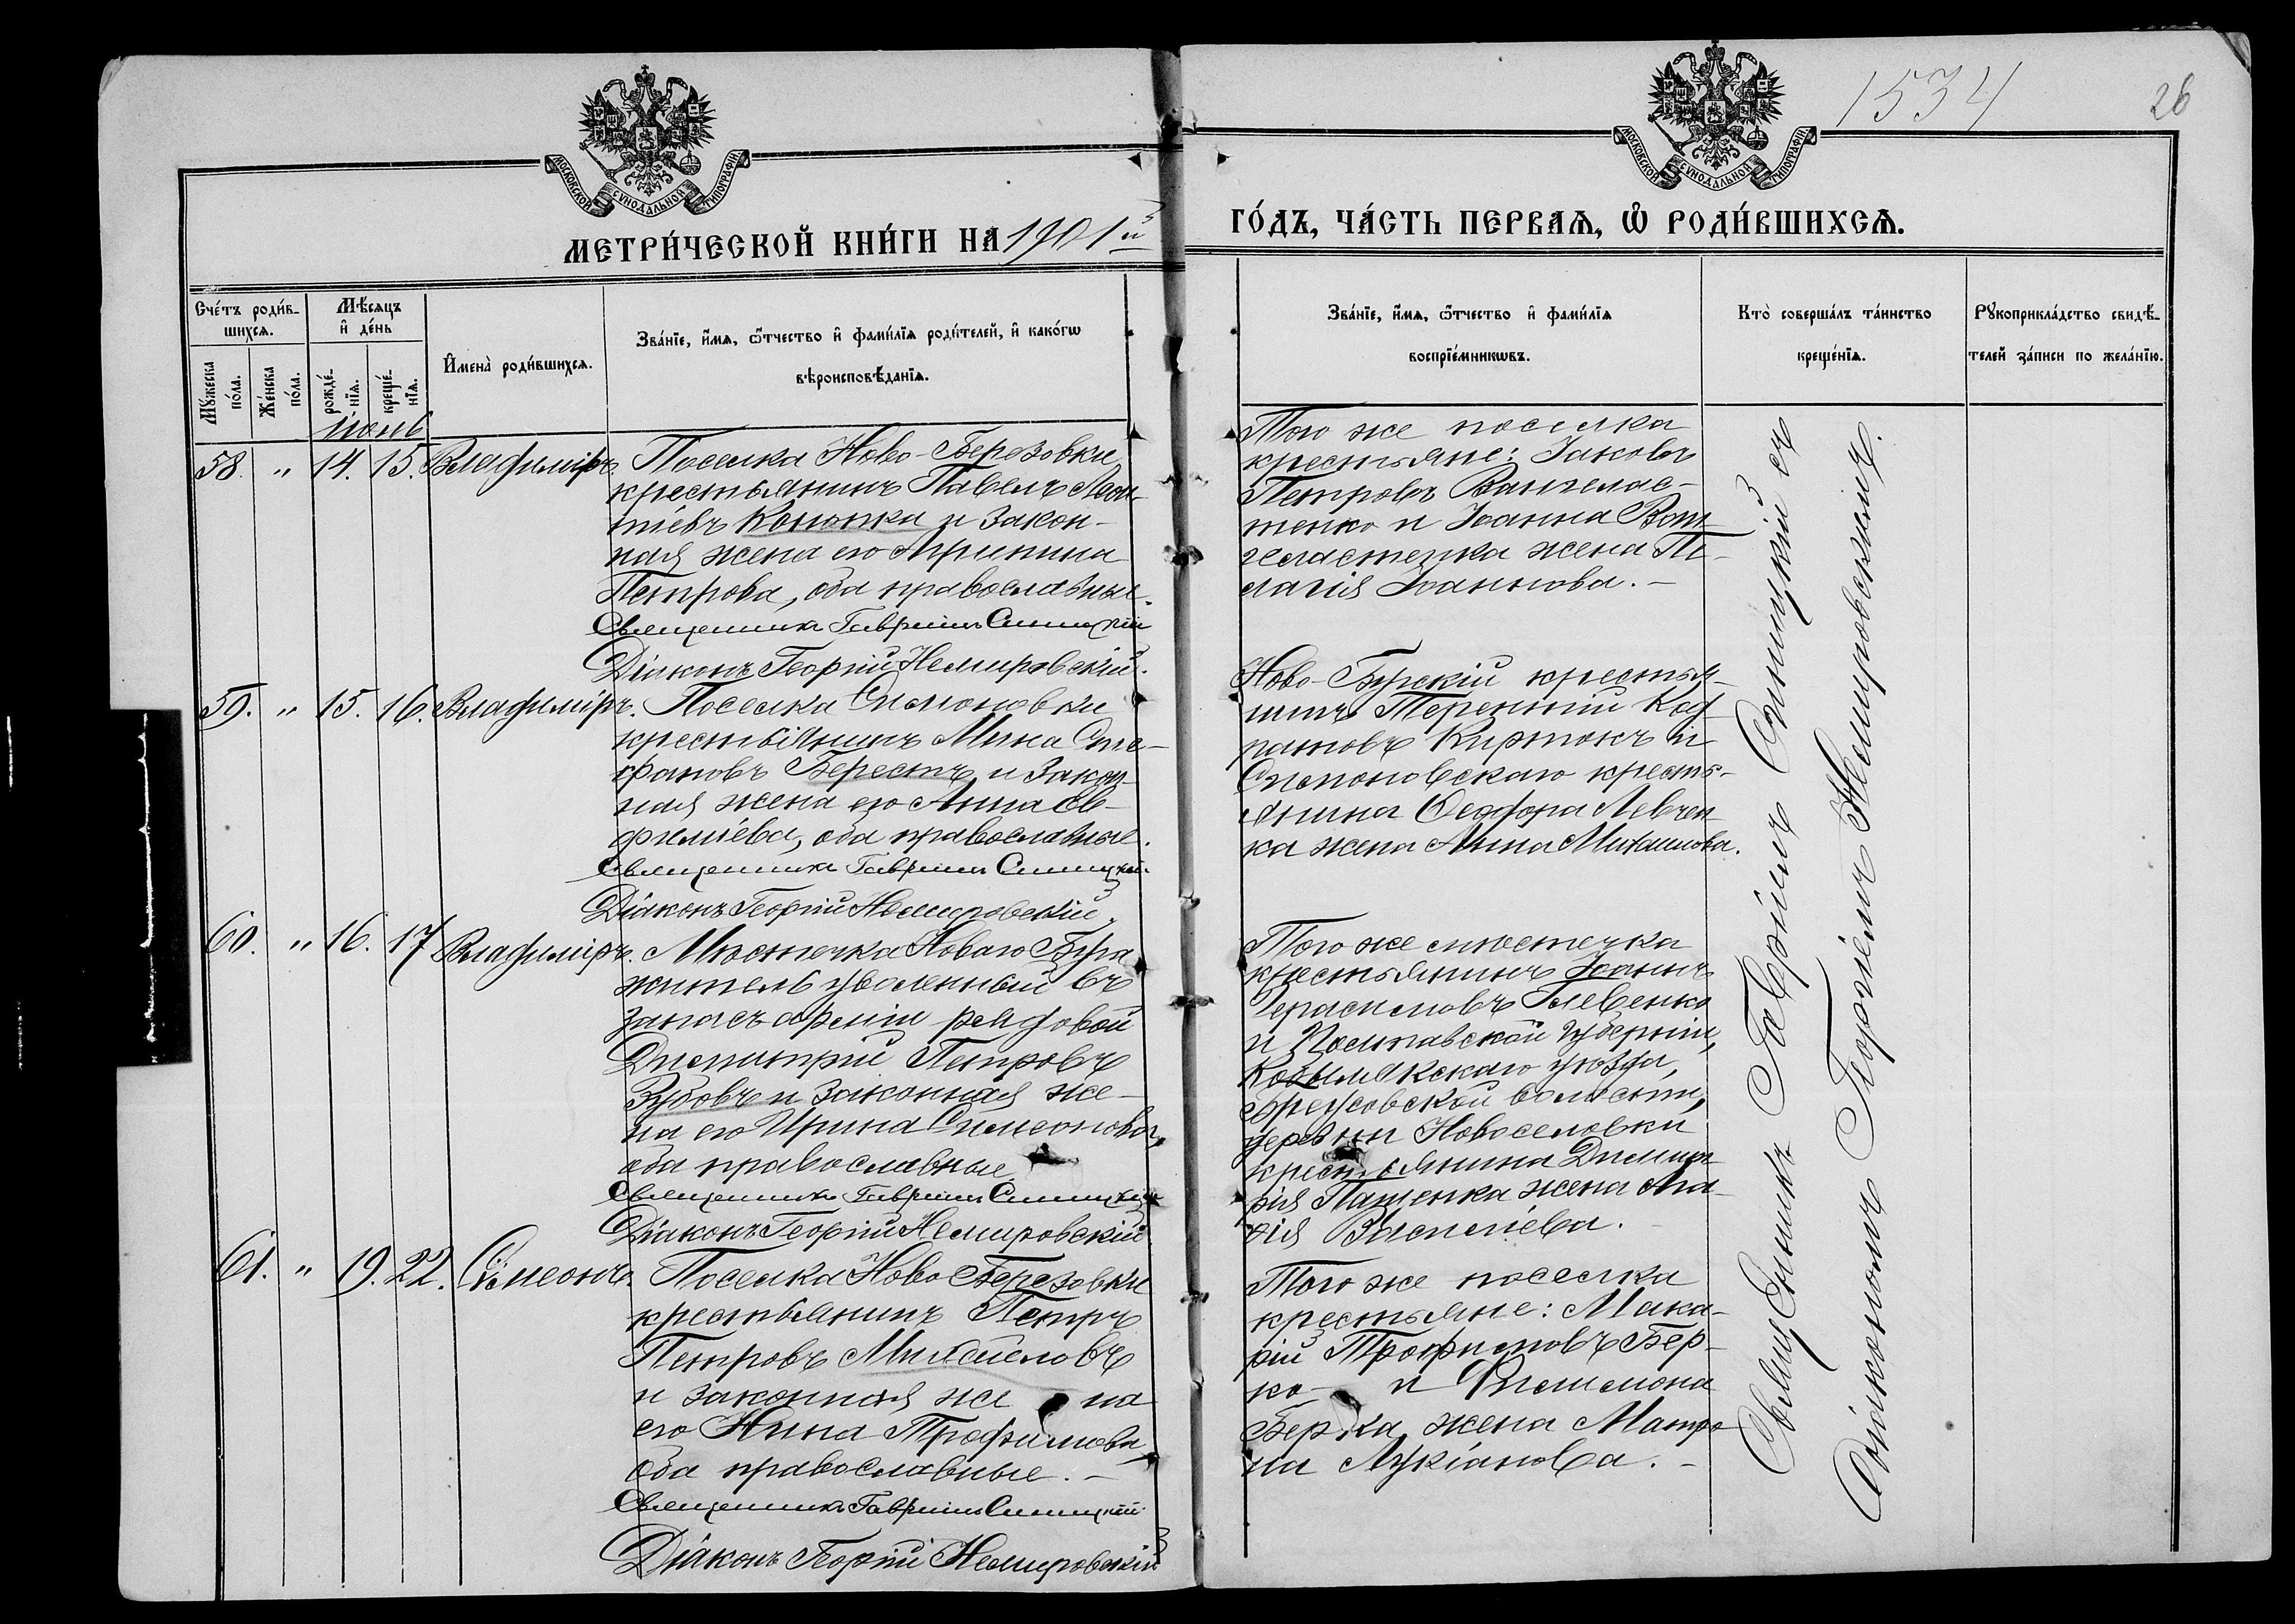 1534
26
МОСКОВСКОЙ СѴНОДАЛЬНОЙ ТИПОГРАФІИ
МОСКОВСКОЙ СѴНОДАЛЬНОЙ ТИПОГРАФІИ
МЕТРИ́ЧЕСКОЙ КНИ́ГИ НА 1901й
ГО́ДЪ, ЧА́СТЬ ПЕРВАѦ, Ѡ҆ РОДИ́ВШИХСѦ.
Сче́тъ роди́в-
шихсѧ.
Мѣ́сѧцъ
и҆ де́нь
Мꙋ́жеска
по́ла.
Же́нска
по́ла.
рожде́-
нїѧ.
креще́-
нїѧ.
И҆мена̀ роди́вшихсѧ.
Зва́нїе, и҆́мѧ, ѻ҆́тчество и҆ фами́лїѧ роди́телей, и҆ како́гѡ
вѣроисповѣ́данїѧ.
Зва́нїе, и҆́мѧ, ѻ҆́тчество и҆ фами́лїѧ
воспрїе́мникѡвъ.
Кто̀ соверша́лъ та́инство
креще́нїѧ.
Рꙋкоприкла́дство свидѣ́-
телей за́писи по жела́нїю.
Июнь
58. " 14. 15. Владиміръ.
Поселка Ново-Березовки
крестьянинъ Павелъ Леон-
тіевъ Конопка и закон-
ная жена его Агрипина
Петрова, оба православные.
Священникъ Гавріилъ Синицкій
Діаконъ Георгій Немировскій.
Того же поселка
крестьяне: Іаковъ
Петровъ
тенко и Іоанна
жена Пе-
лагія Іоаннова.-
59. " 15. 16. Владиміръ.
Поселка Симоновки
крестьянинъ Мина Сте-
фановъ Берестъ и закон-
ная жена его Анна Ев-
фиміева, оба православные.
Священникъ Гавріилъ Синицкій.
Діаконъ Георгій Немировскій.
Ново-Бугскій крестья-
нинъ Терентій Код-
ратовъ Киртокъ и
Симоновскаго кресть-
янина Ѳеодора Левчен-
ка жена Анна Михаилова.
60. " 16. 17 Владиміръ.
Мѣстечка Новаго Буга
житель уволенный въ
запасъ арміи рядовой
Димитрій Петровъ
Зубовъ и законная же-
на его Ирина Симеонова,
оба православные
Священникъ Гавріилъ Синицкій
Діаконъ Георгій Немировскій
Того же мѣстечка
крестьянинъ Іоаннъ
Герасимовъ Глевенко
и Полтавской губерніи,
Кобылякскаго уѣзда,
волости,
деревни Новоселовки
крестьянина Димит-
рія Пащенка жена Ма-
рія Васиміева.
61. " 19. 22. Симеонъ.
Поселка Ново Березовки
крестьянинъ Петръ
Петровъ Михайловъ
и законная же на
его Нина Трофимова
оба православные.-
Священникъ Гавріилъ Синицкій
Діаконъ Георгій Немировскій
Того же поселка
крестьяне: Мака-
рій Трофимовъ Бер-
ко- и Филимона
Берка жена Матро
на Лукіанова.-
Священникъ Гавріилъ Синицкій съ
Діакономъ Георгіемъ Немировскимъ.